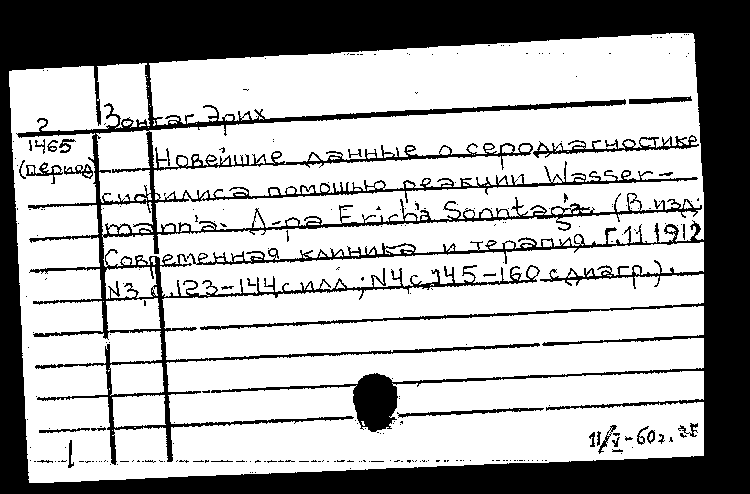 Зонтаг, Эрих
2
1465
(период)
Новейшие данные о серодиагностике
сифилиса помощью реакции Wasser-
mann'a. Д-ра Erich'a Sonntag'a. (В изд:
Современная клиника и терапия. Г.11.1912
N3, с.123-144, с илл.; N4, с.145-160 с диагр.).
1
11/V-60г.